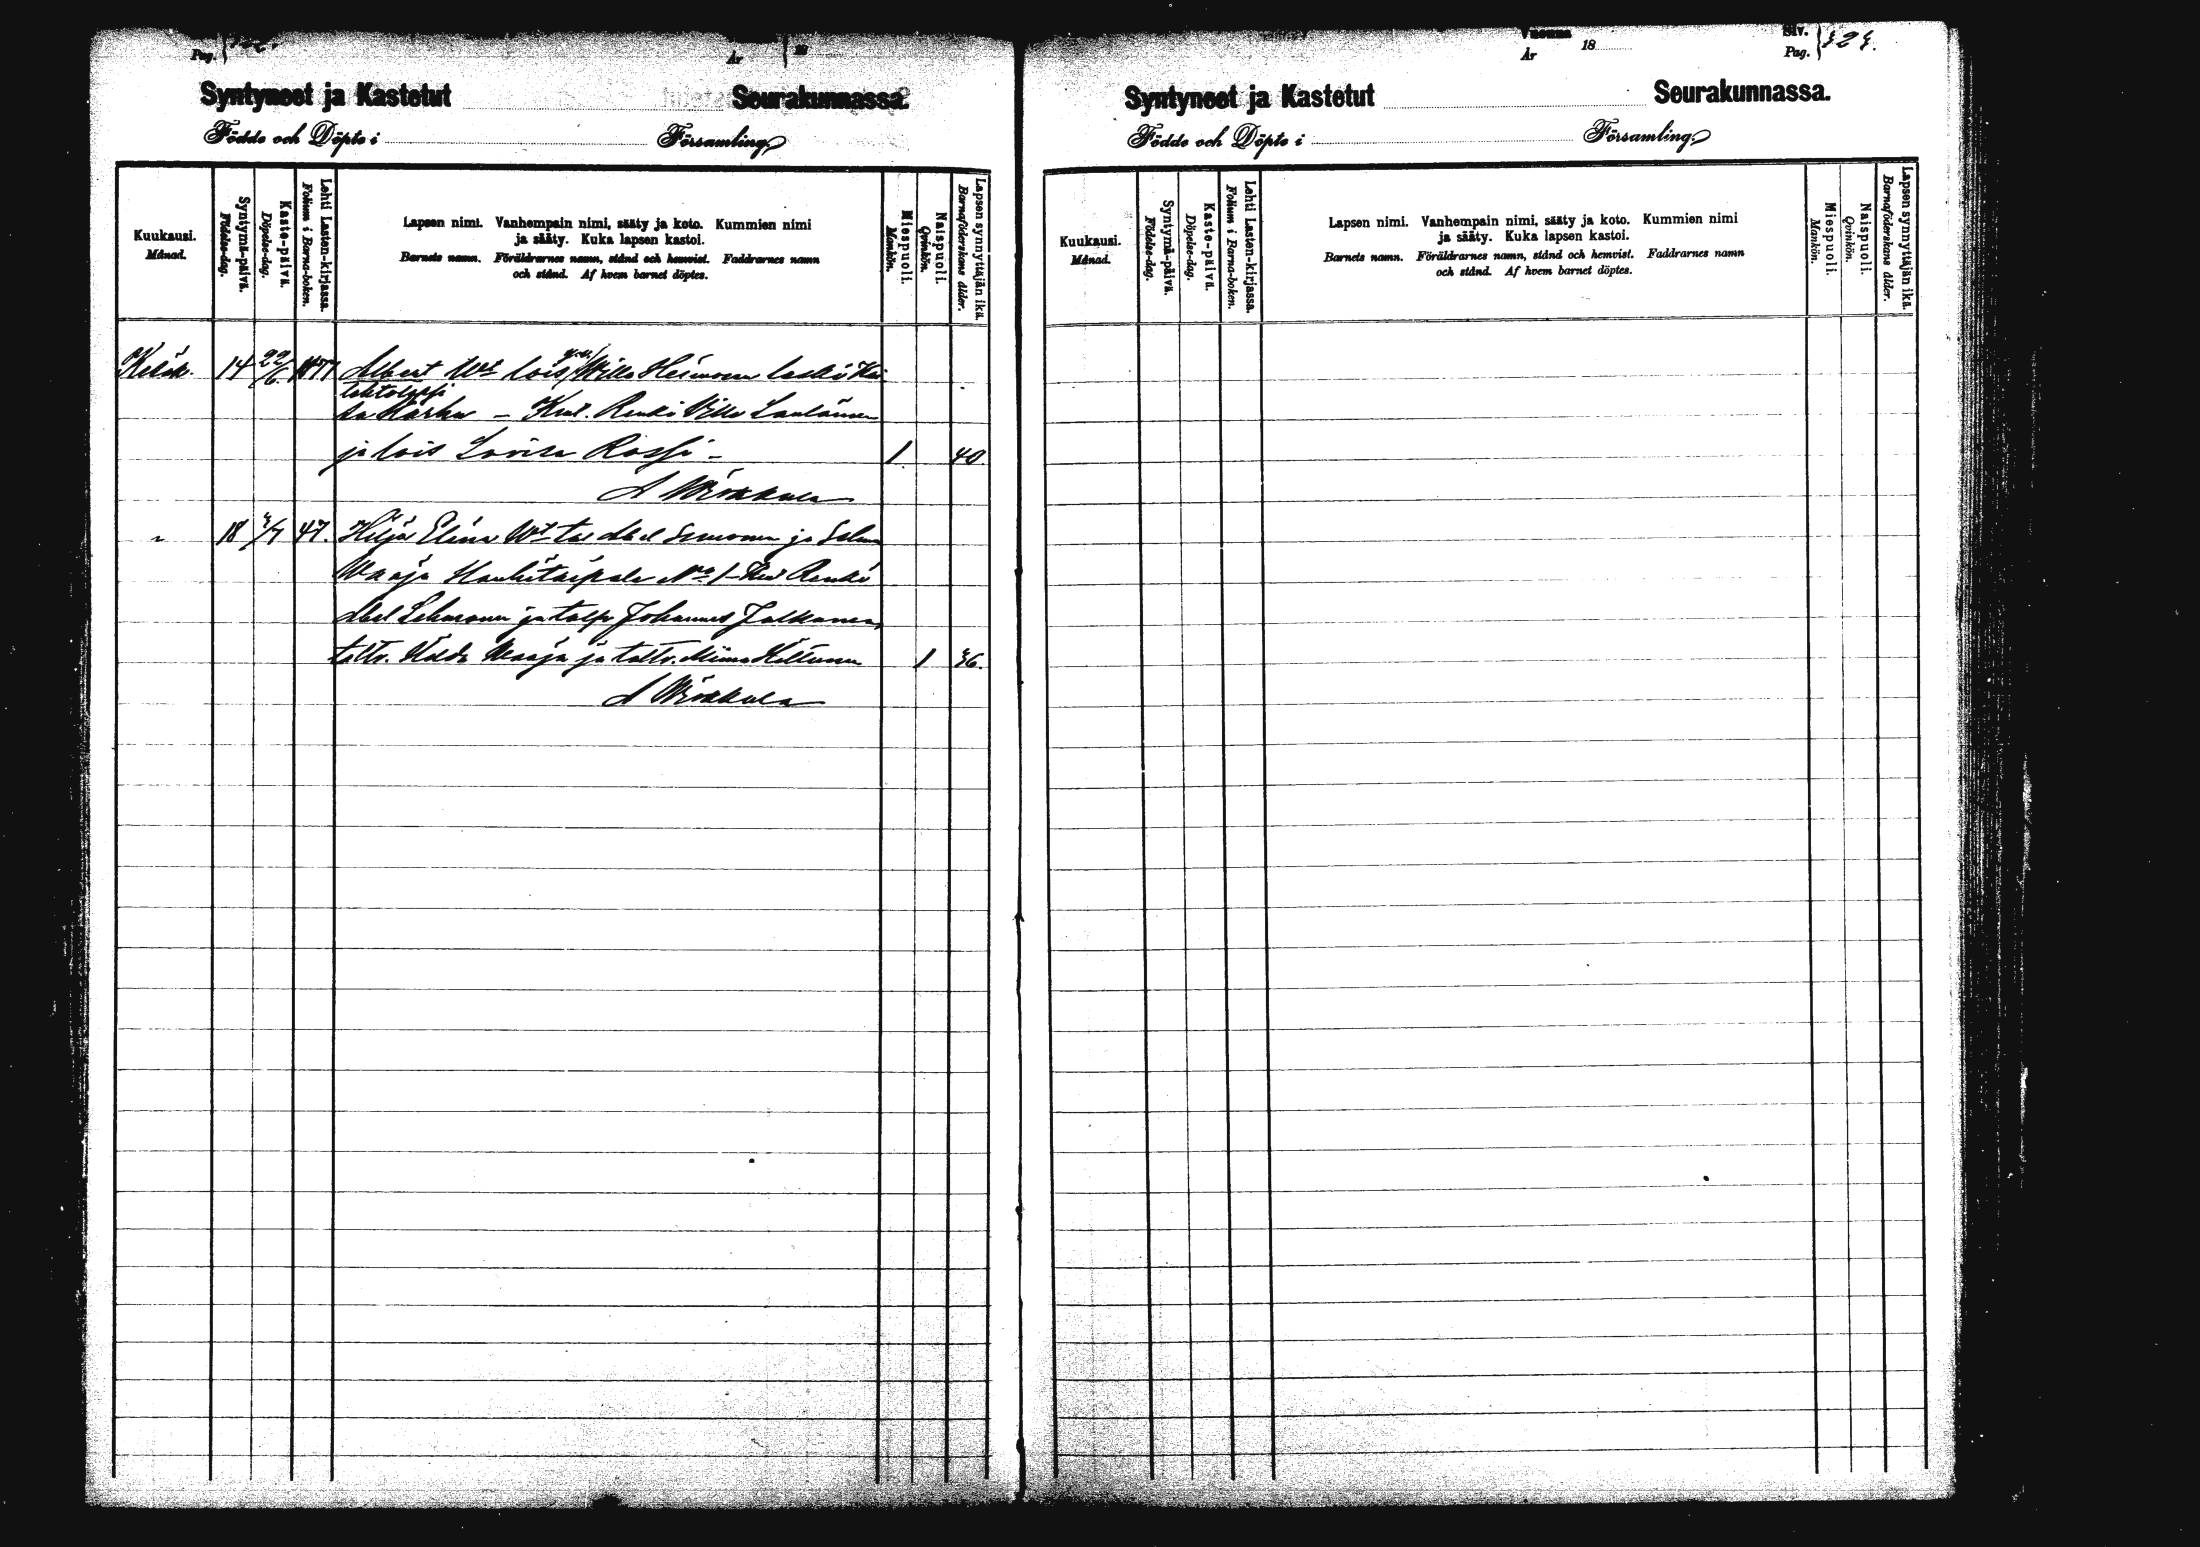 Pag.
År 18
Syntyneet ja Kastetut Seurakunnassa.
Födde och Döpte i Församling.
Kuukausi.
Månad.
Syntymä-päivä.
Födelse-dag.
Kaste-päivä.
Döpelse-dag.
Lehti Lasten-kirjassa.
Folium i Barna-boken.
Lapsen nimi. Vanhempain nimi, sääty ja koto. Kummien nimi
ja sääty. Kuka lapsen kastoi.
Barnets namn. Föräldrarnes namn, stånd och hemvist. Faddrarnes namn
och stånd. Af hvem barnet döptes.
Miespuoli.
Mankön.
Naispuoli.
Qvinkön.
Lapsen synnyttäjän ikä.
Barnaföderskans ålder.
Kesäk. 14 22/6 Albert Wt lois Wille Heimonen leski
- Kumt. Renki Ville
ja lois Lovisa Rossi - 1 40.
A
" 18 47. Hilja Elina Wt tal Abel ja
Waaja No 1 - Renki
Abel ja Johannes Jalkanen,
taltr. Hilda Waaja ja taltr. Miina Hiltunen 1 36.
A
Vuonna
År 18
Siv.
Pag. 323.
Syntyneet ja Kastetut Seurakunnassa.
Födde och Döpte i Församling.
Kuukausi.
Månad.
Syntymä-päivä.
Födelse-dag.
Kaste-päivä.
Döpelse-dag.
Lehti Lasten-kirjassa.
Folium i Barna-boken.
Lapsen nimi. Vanhempain nimi, sääty ja koto. Kummien nimi
ja sääty. Kuka lapsen kastoi.
Barnets namn. Föräldrarnes namn, stånd och hemvist. Faddrarnes namn
och stånd. Af hvem barnet döptes.
Miespuoli.
Mankön.
Naispuoli.
Qvinkön.
Lapsen synnyttäjän ikä.
Barnaföderskans ålder.